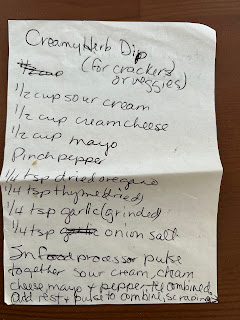 Creamy Herb Dip
(for crackers
or veggies)
1/2 cup
1/2 cup sour cream
1/2 cup cream cheese
1/2 cup mayo
Pinch pepper
1/4 tsp dried oregano
1/4 tsp thyme (dried)
1/4 tsp garlic (grinded)
1/4 tsp garlic onion salt
In food processor pulse
together sour cream, cream
cheese, mayo & pepper, til combined.
add rest & pulse to combine, scraping